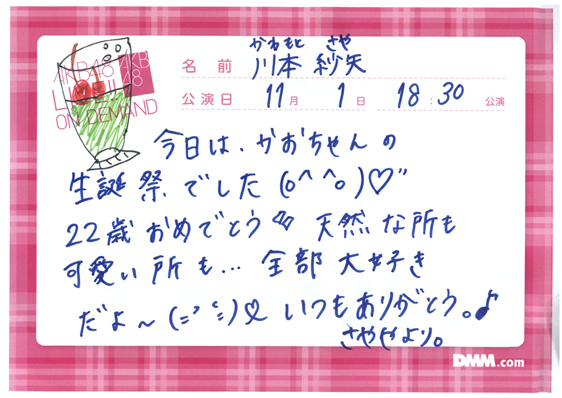 かわもと さや
名前 川本 紗矢
AKB48 AKB
LIVE!! 48
ON DEMAND
公演日 11月 1日 18:30 公演
今日は、かおちゃんの
生誕祭でした(o^^o)♡"
22歳おめでとう 天然な所も
可愛い所も... 全部大好き
だよ〜 いつもありがとう。♪
さややより。
DMM.com